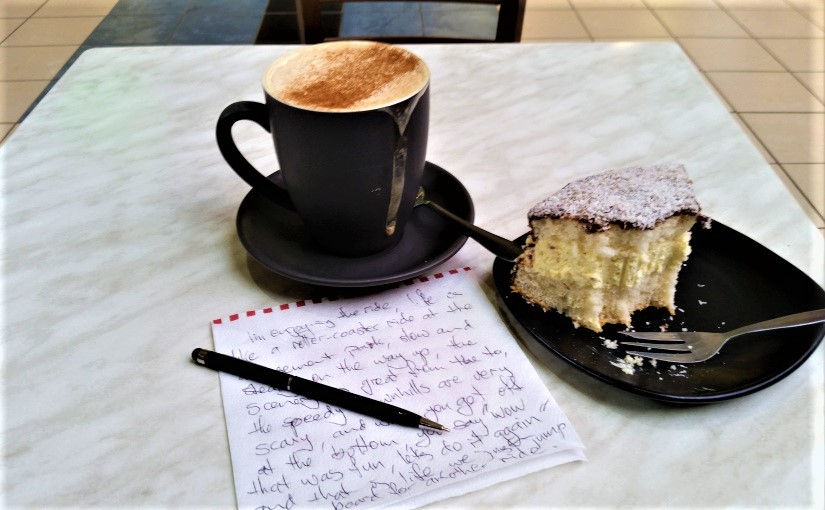 I'm enjoying the ride, life is
like a roller-coaster ride at the
amusement park, slow and
steady on the way up, the
scenery great from the to,
the speedy downhills are very
scary, and when you got off
at the bottom, you say "wow
that was fun, let's do it again"
and that is life, we just jump
board for another ride.